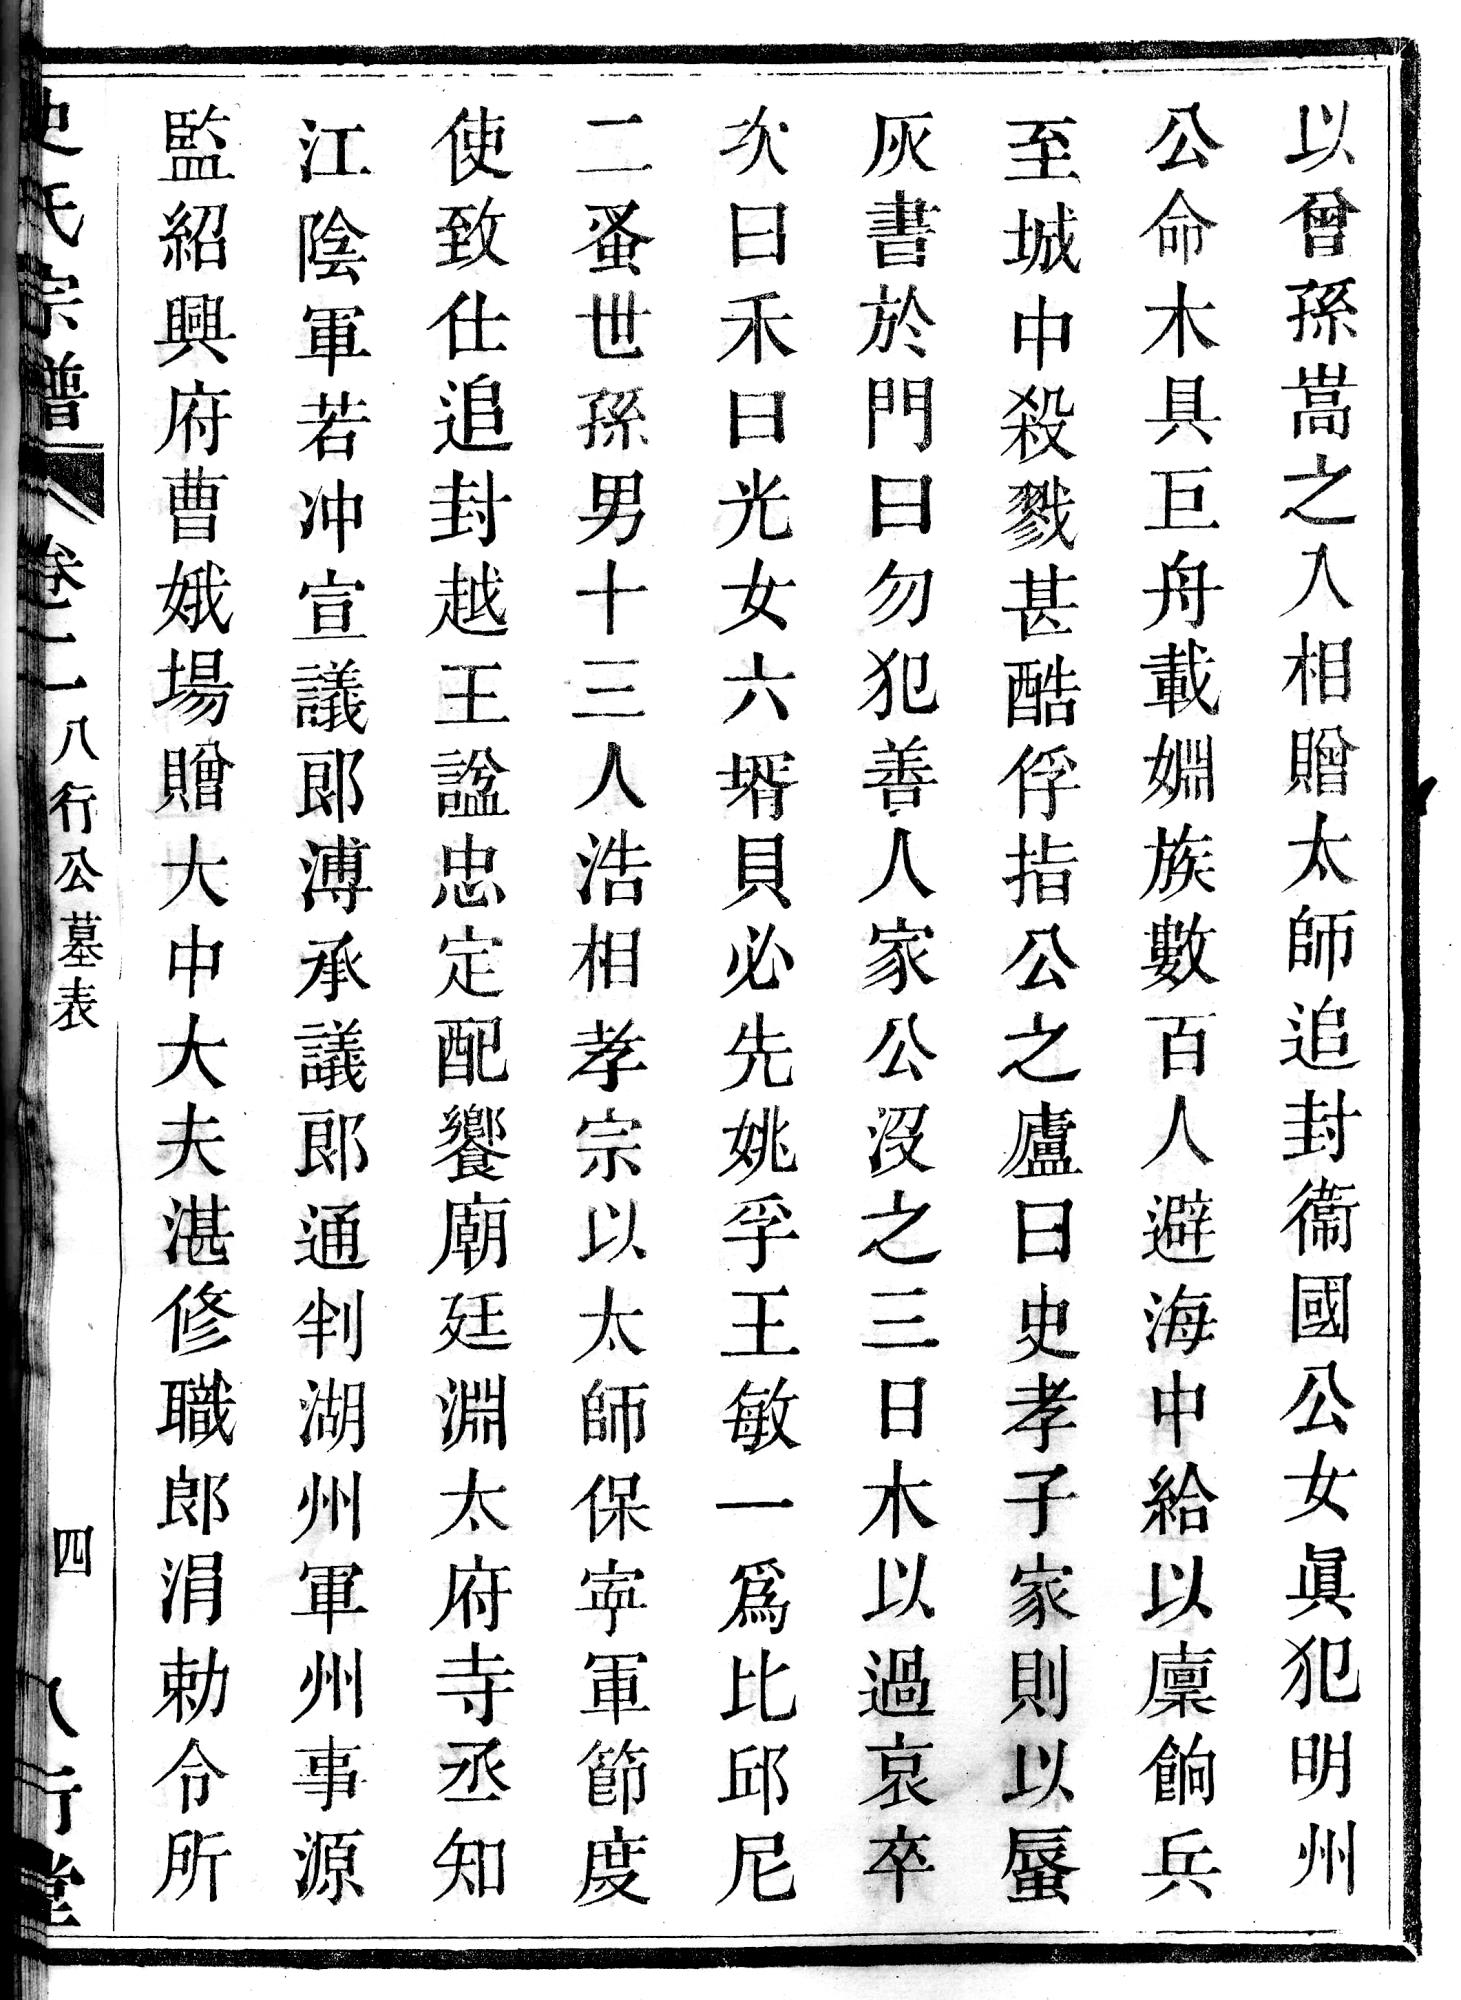 以曾孫嵩之入相贈太師追封衞國公女眞犯明州
公命木具巨舟載婣族數百人避海中給以廩餉兵
至城中殺戮甚酷俘指公之廬曰史孝子家則以蜃
灰書於門曰勿犯善人家公沒之三日木以過哀卒
次曰禾曰光女六壻貝必先姚孚王敏一爲比邱尼
二蚤世孫男十三人浩相孝宗以太師保寕軍節度
使致仕追封越王諡忠定配饗廟廷淵太府寺丞知
江陰軍若冲宣議郎溥承議郎通判湖州軍州事源
監紹興府曹娥場贈大中大夫湛修職郎涓勅令所
史氏宗譜 卷二 八行公墓表 四 八行堂